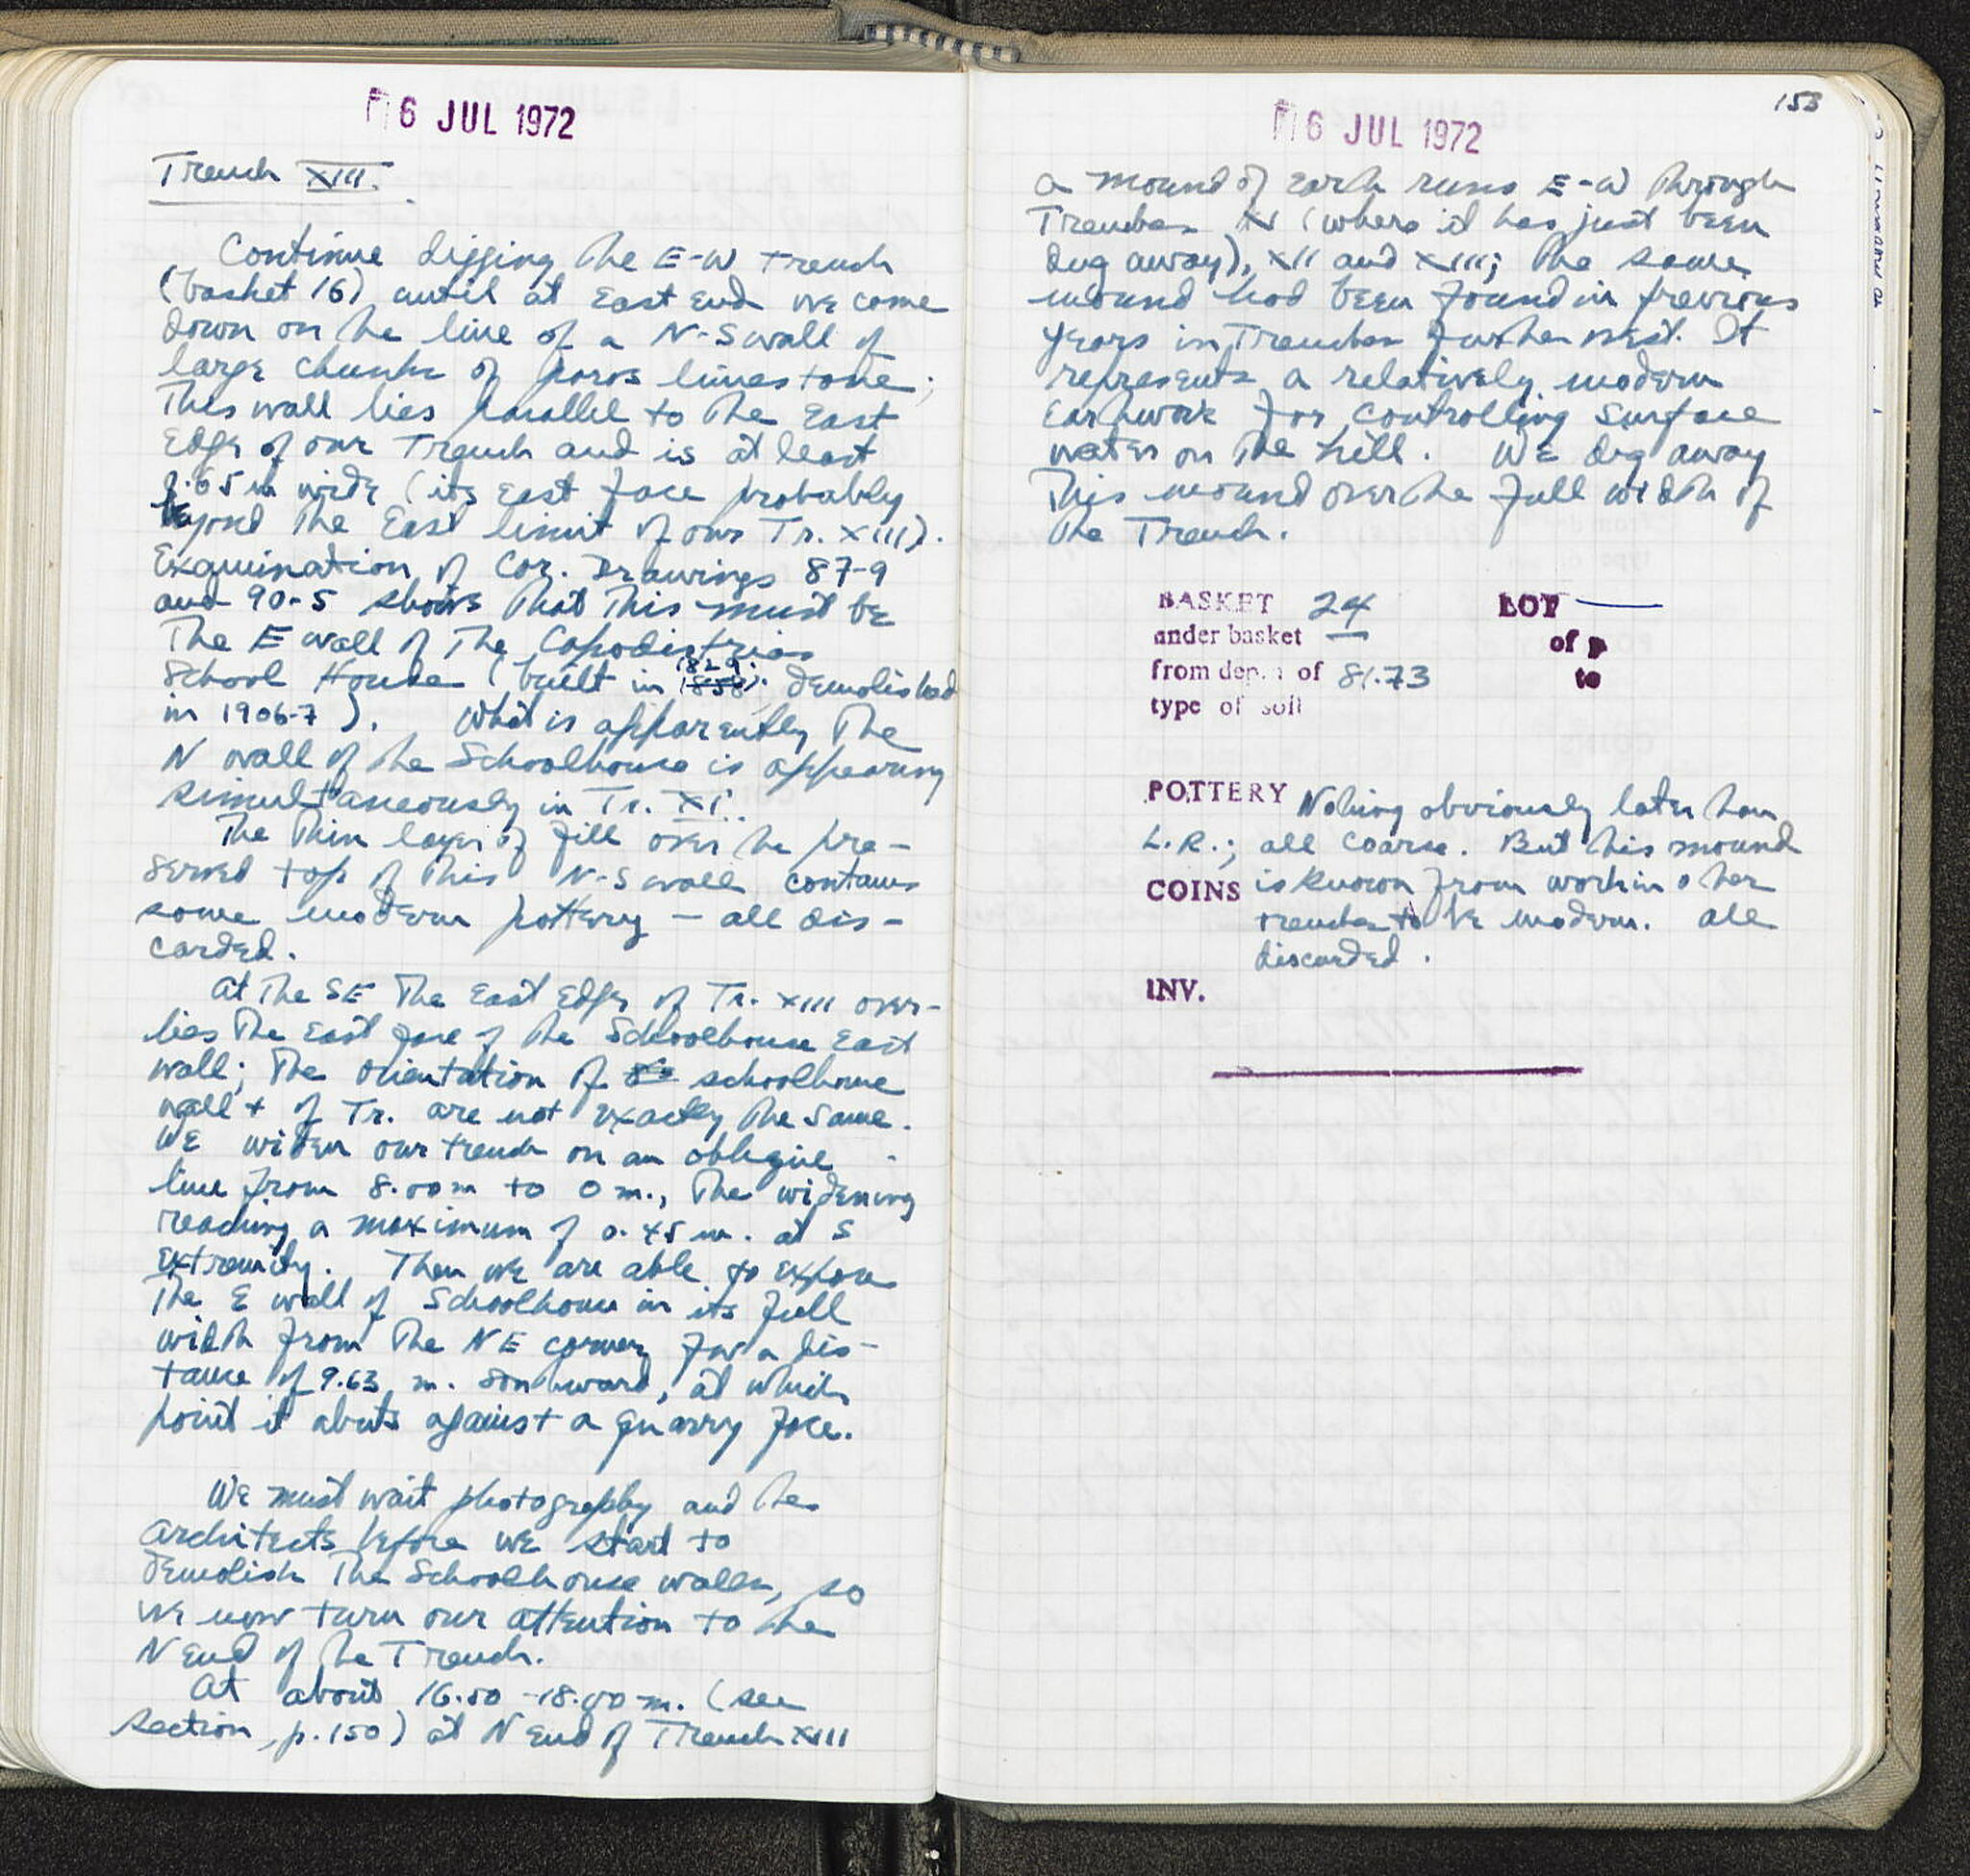 6 JUL 1972
Trench XIII.
Continue digging the E-W trench
(basket 16) until at East end we come
down on the line of a N-S wall of
large chunks of poros limestone;
This wall lies parallel to the East
Edge of our Trench and is at least
0.65 m wide (its East face probably
beyond the East limit of our Tr. XIII).
Examination of Cor. Drawings 87-9
and 90-5 shows that this must be
the E wall of the Capodistrias
School House (built in 1829; demolished
in 1906-7). What is apparently the
N wall of the Schoolhouse is appearing
simultaneously in Tr. XI.
The thin layer of fill over the pre-
served top of this N-S wall contains
some modern pottery — all dis-
carded.
At the SE the East Edge of Tr. XIII over-
lies the East face of the Schoolhouse East
wall; the orientation of schoolhouse
wall + of Tr. are not exactly the same.
We widen our trench on an oblique
line from 8.00 m to 0 m., the widening
reaching a maximum of 0.45 m. at S
extremity. Then we are able to expose
the E wall of Schoolhouse in its full
width from the NE corner for a dis-
tance of 9.63 m. southward, at which
point it abuts against a quarry face.
We must wait photography and the
architects before we start to
demolish the Schoolhouse walls, so
we now turn our attention to the
N End of the Trench.
At about 16.50-18.00 m. (see
section, p. 150) at N End of Trench XIII
6 JUL 1972
153
a mound of earth runs E-W through
Trenches XI (where it has just been
dug away), XII and XIII; the same
mound had been found in previous
years in Trenches further west. It
represents a relatively modern
Earthwork for controlling surface
water on the hill. We dig away
this mound over the full width of
the Trench.
BASKET 24 LOT —
under basket — of p
from depth of 81.73 to
type of soil
POTTERY Nothing obviously later than
L.R.; all coarse. But this mound
COINS is known from work in other
trenches to be modern. All
discarded.
INV.